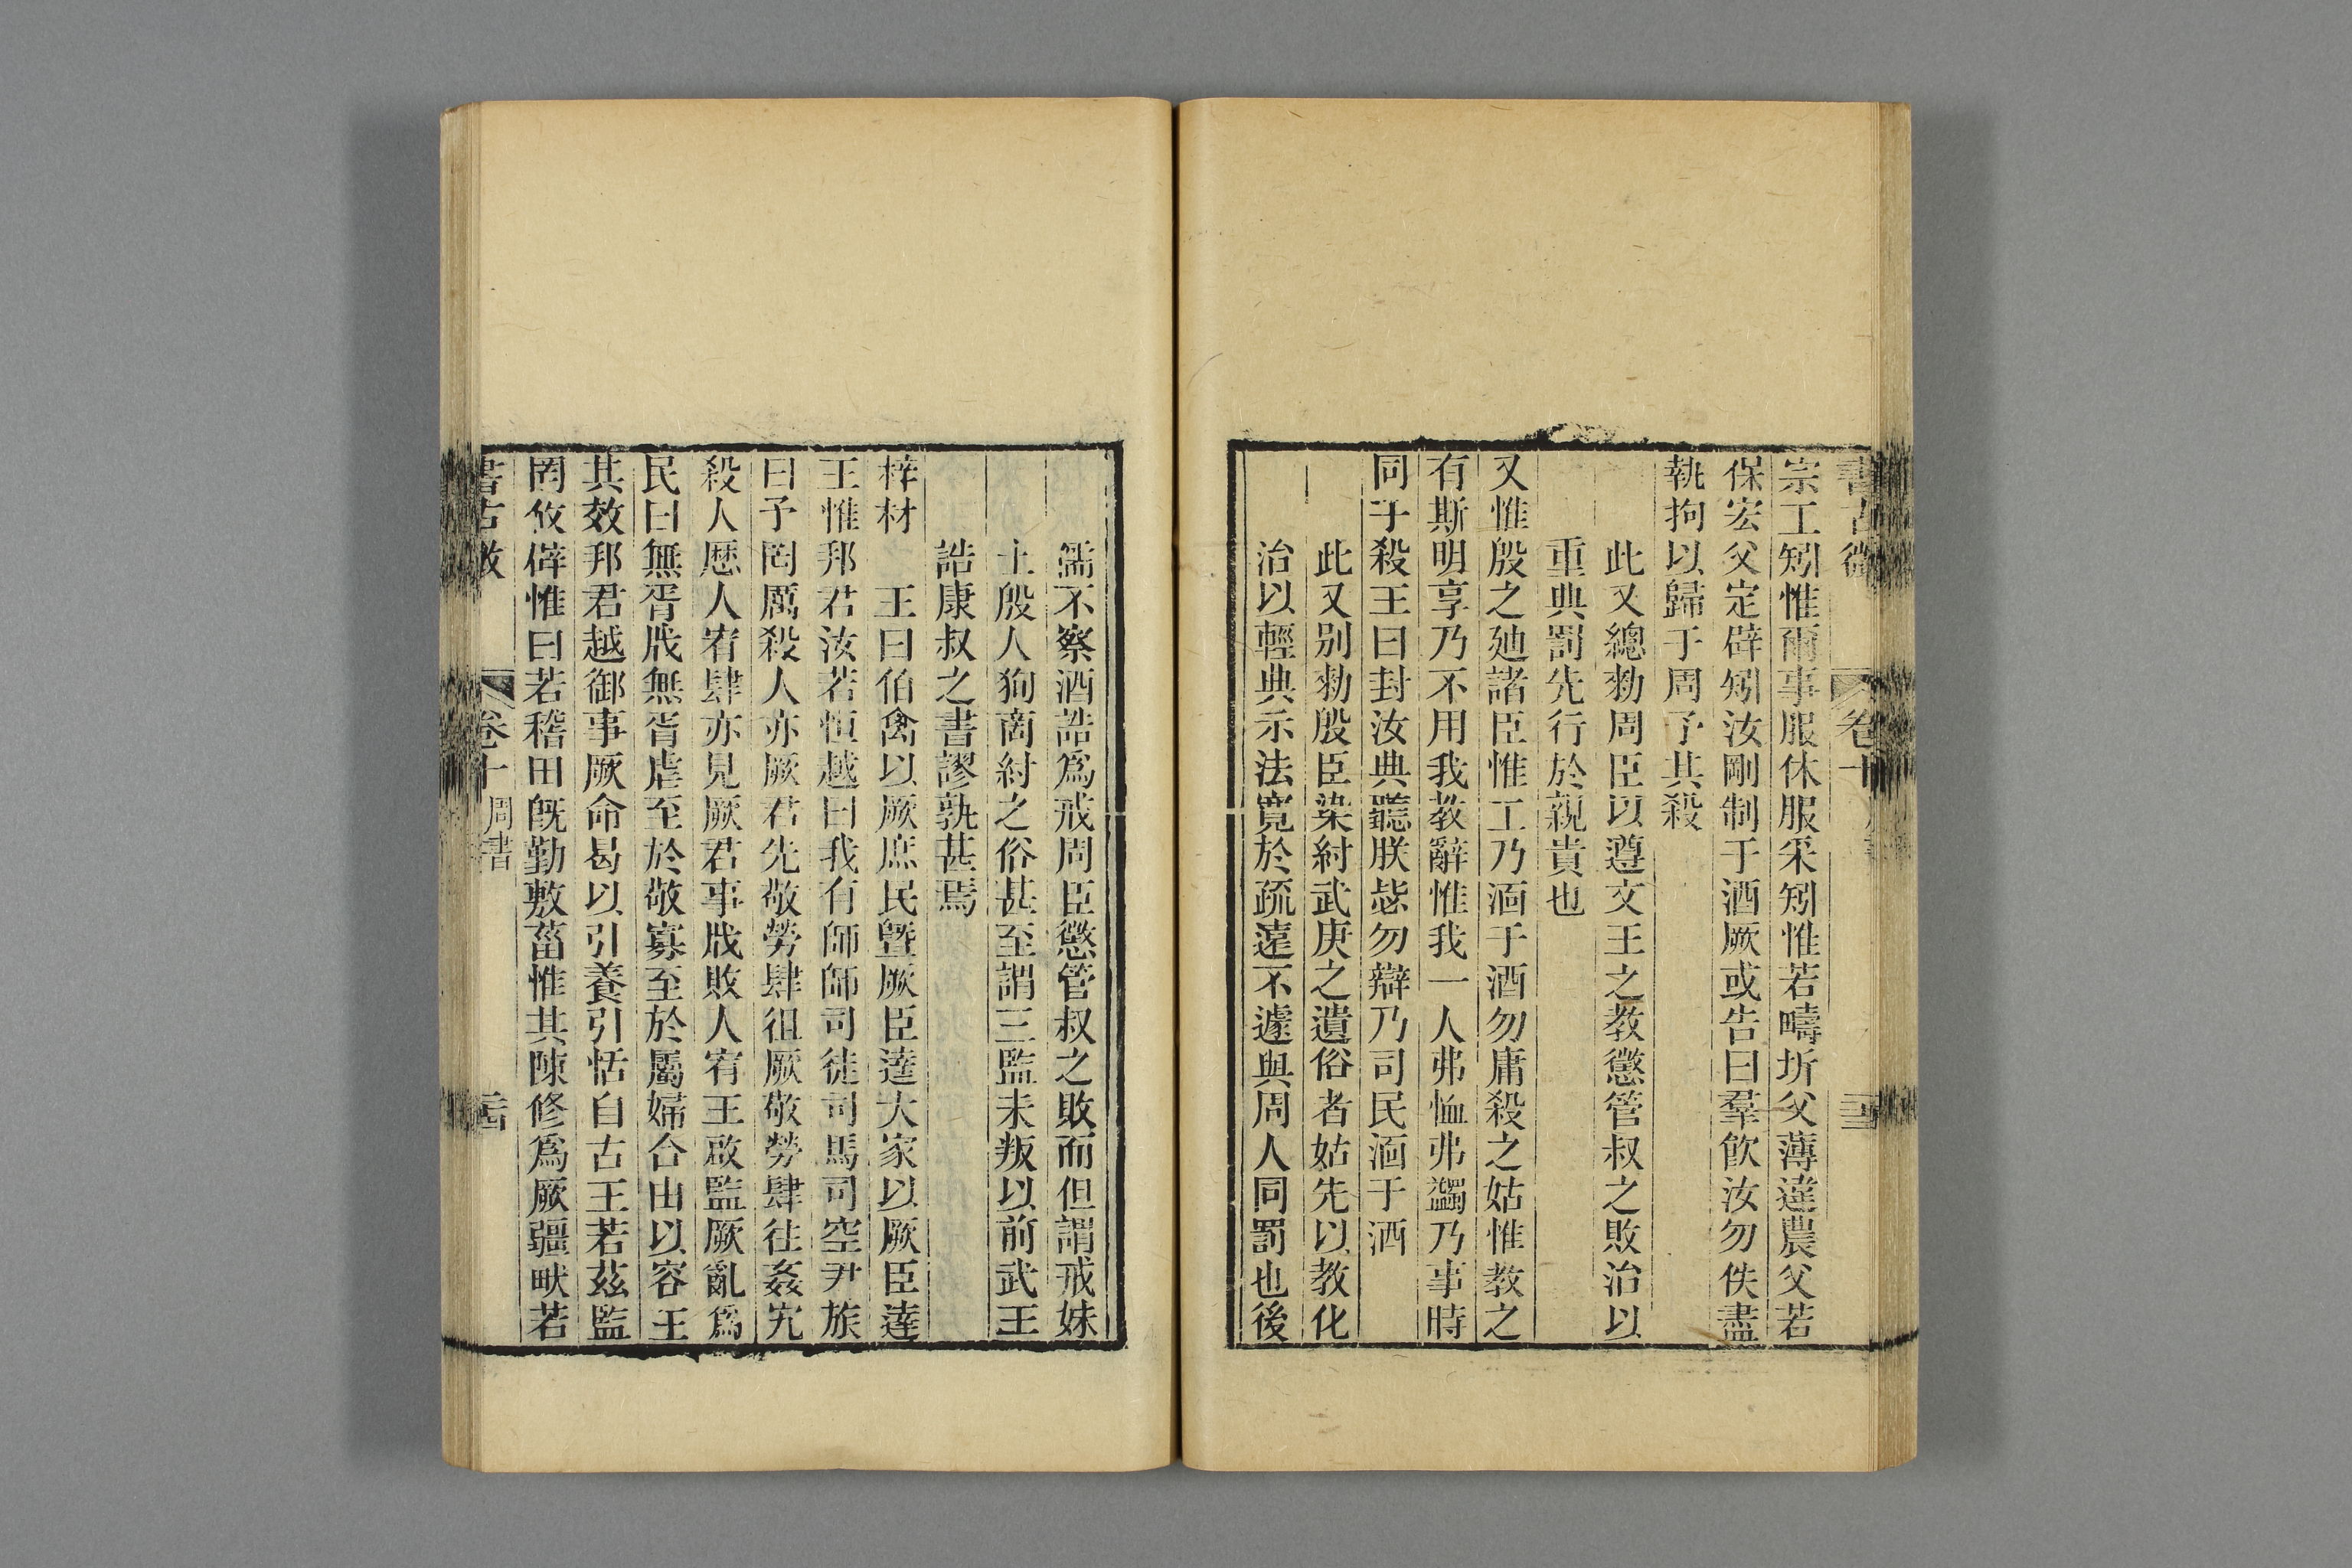 書古微 卷十
宗工矧惟爾事服休服采矧惟若疇圻父薄違農父若
保宏父定辟矧汝剛制于酒厥或告曰羣飲汝勿佚盡
執拘以歸于周予其殺
此又總勑周臣以遵文王之教懲管叔之敗治以
重典罰先行於親貴也
又惟殷之廸諸臣惟工乃湎于酒勿庸殺之姑惟教之
有斯明享乃不用我教辭惟我一人弗恤弗蠲乃事時
同于殺王曰封汝典聽朕毖勿辯乃司民湎于酒
此又别勑殷臣染紂武庚之遺俗者姑先以教化
治以輕典示法寛於疏遠不遽與周人同罰也後
儒不察酒誥爲戒周臣懲管叔之敗而但謂戒妹
土殷人狥商紂之俗甚至謂三監未叛以前武王
誥康叔之書謬孰甚焉
梓材 王曰伯禽以厥庶民曁厥臣達大家以厥臣達
王惟邦君汝若恒越曰我有師師司徒司馬司空尹旅
曰予罔厲殺人亦厥君先敬勞肆徂厥敬勞肆往姦宄
殺人歷人宥肆亦見厥君事戕敗人宥王啟監厥亂爲
民曰無胥戕無胥虐至於敬寡至於屬婦合由以容王
其效邦君越御事厥命曷以引養引恬自古王若茲監
罔攸辟惟曰若稽田旣勤敷菑惟其陳修爲厥疆畎若
書古微 卷十 周書